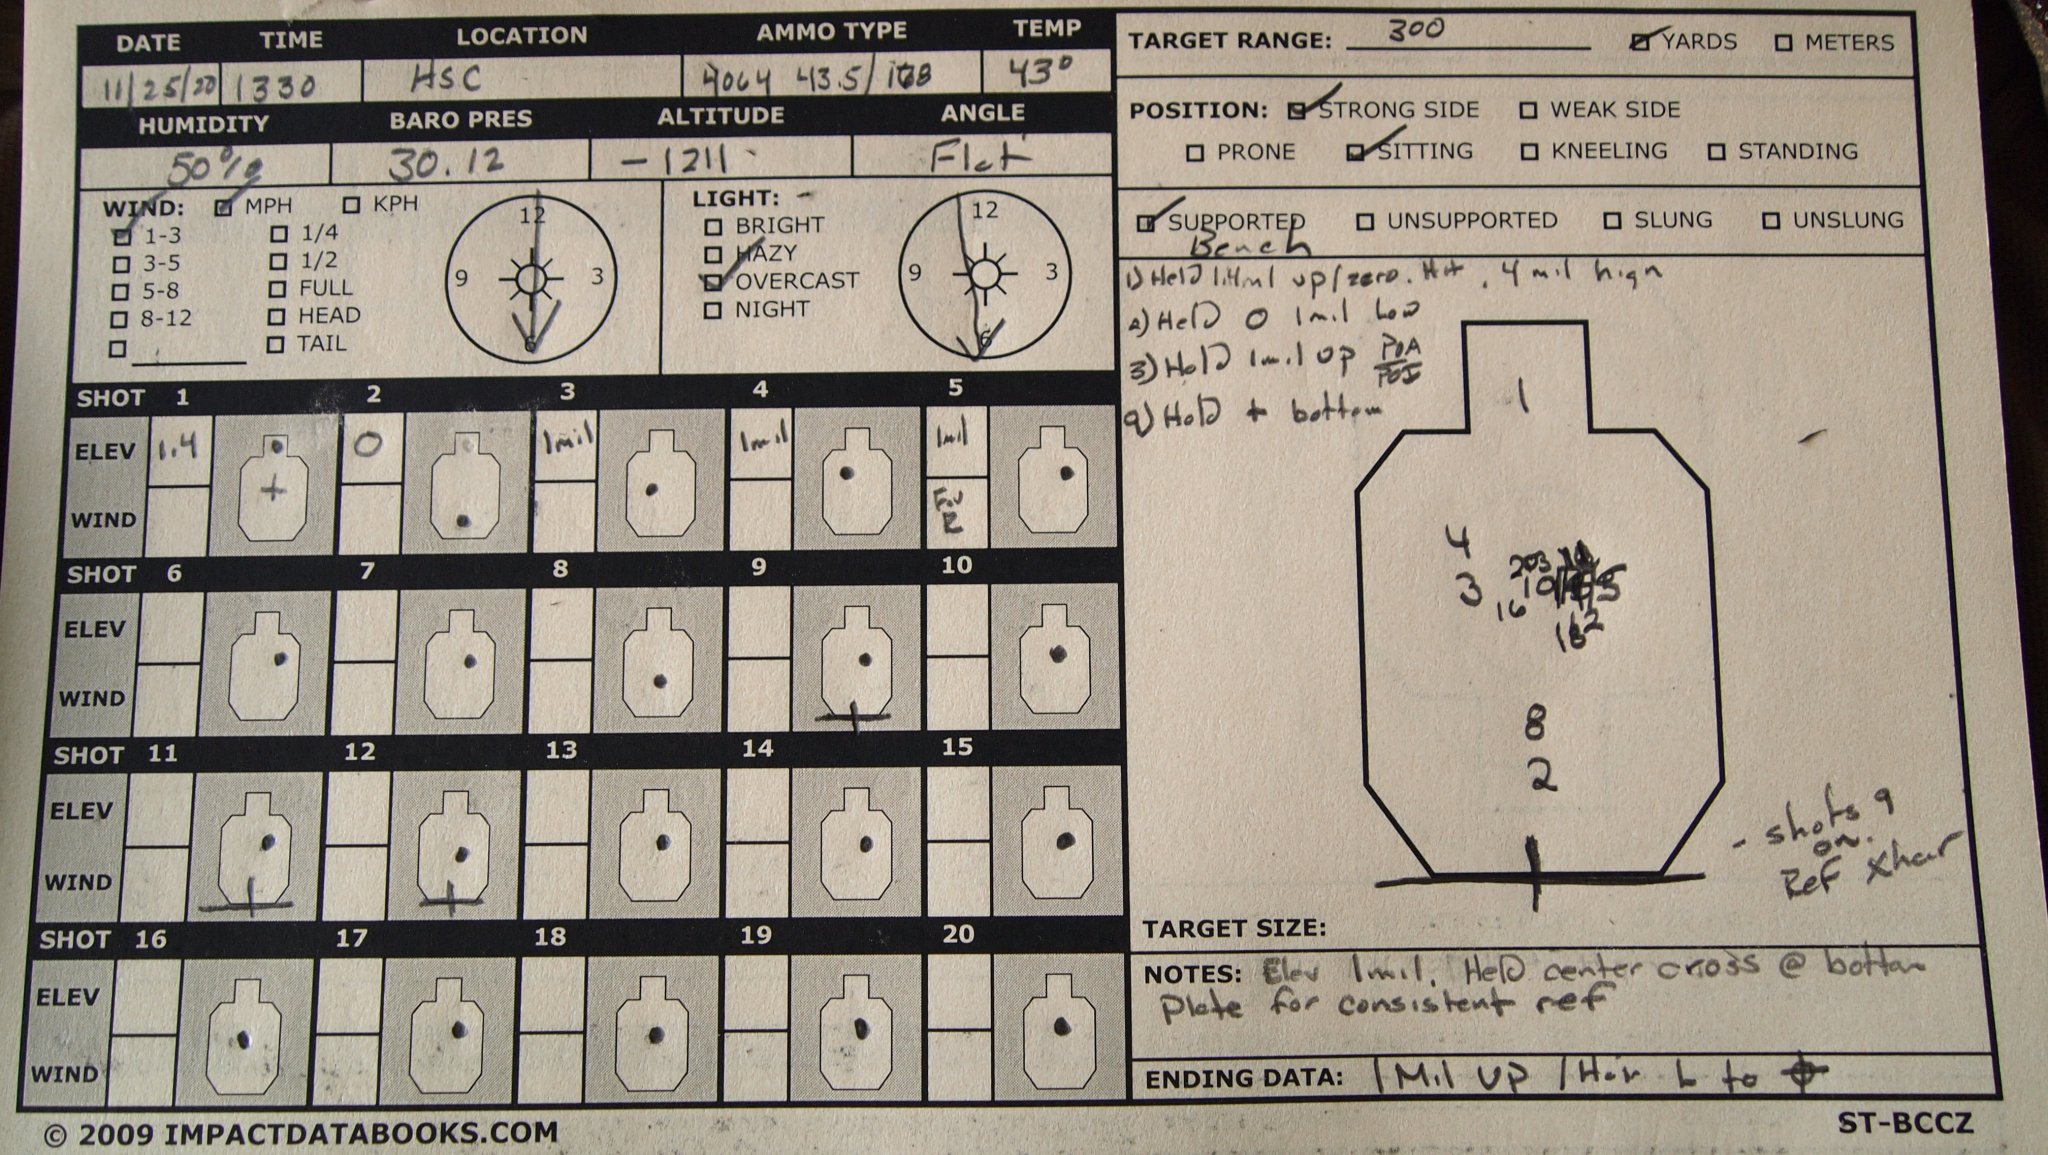 DATE TIME LOCATION AMMO TYPE TEMP
11/25/20 1330 HSC 4064 43.5/168 43°
HUMIDITY BARO PRES ALTITUDE ANGLE
50% 30.12 -1211 Flat
WIND: MPH KPH
1-3 1/4
3-5 1/2
5-8 FULL
8-12 HEAD
TAIL
12
9 3
6
LIGHT: -
BRIGHT
HAZY
OVERCAST
NIGHT
12
9 3
6
SHOT 1 2 3 4 5
ELEV 1.4 0 1mil 1mil 1mil
WIND
SHOT 6 7 8 9 10
ELEV
WIND
SHOT 11 12 13 14 15
ELEV
WIND
SHOT 16 17 18 19 20
ELEV
WIND
TARGET RANGE: 300 YARDS METERS
POSITION: STRONG SIDE WEAK SIDE
PRONE SITTING KNEELING STANDING
SUPPORTED UNSUPPORTED SLUNG UNSLUNG
Bench
1) Held 1.4mil up/zero. Hit .4 mil high
2) Held 0 1mil Low
3) Hold 1mil up POA
POI
9) Hold + bottom
1
4
3
16
8
2
- shots 9
on.
Ref Xhair
TARGET SIZE:
NOTES: Elev 1mil. Held center cross @ bottom
Plate for consistent ref
ENDING DATA: 1 Mil up
© 2009 IMPACTDATABOOKS.COM
ST-BCCZ